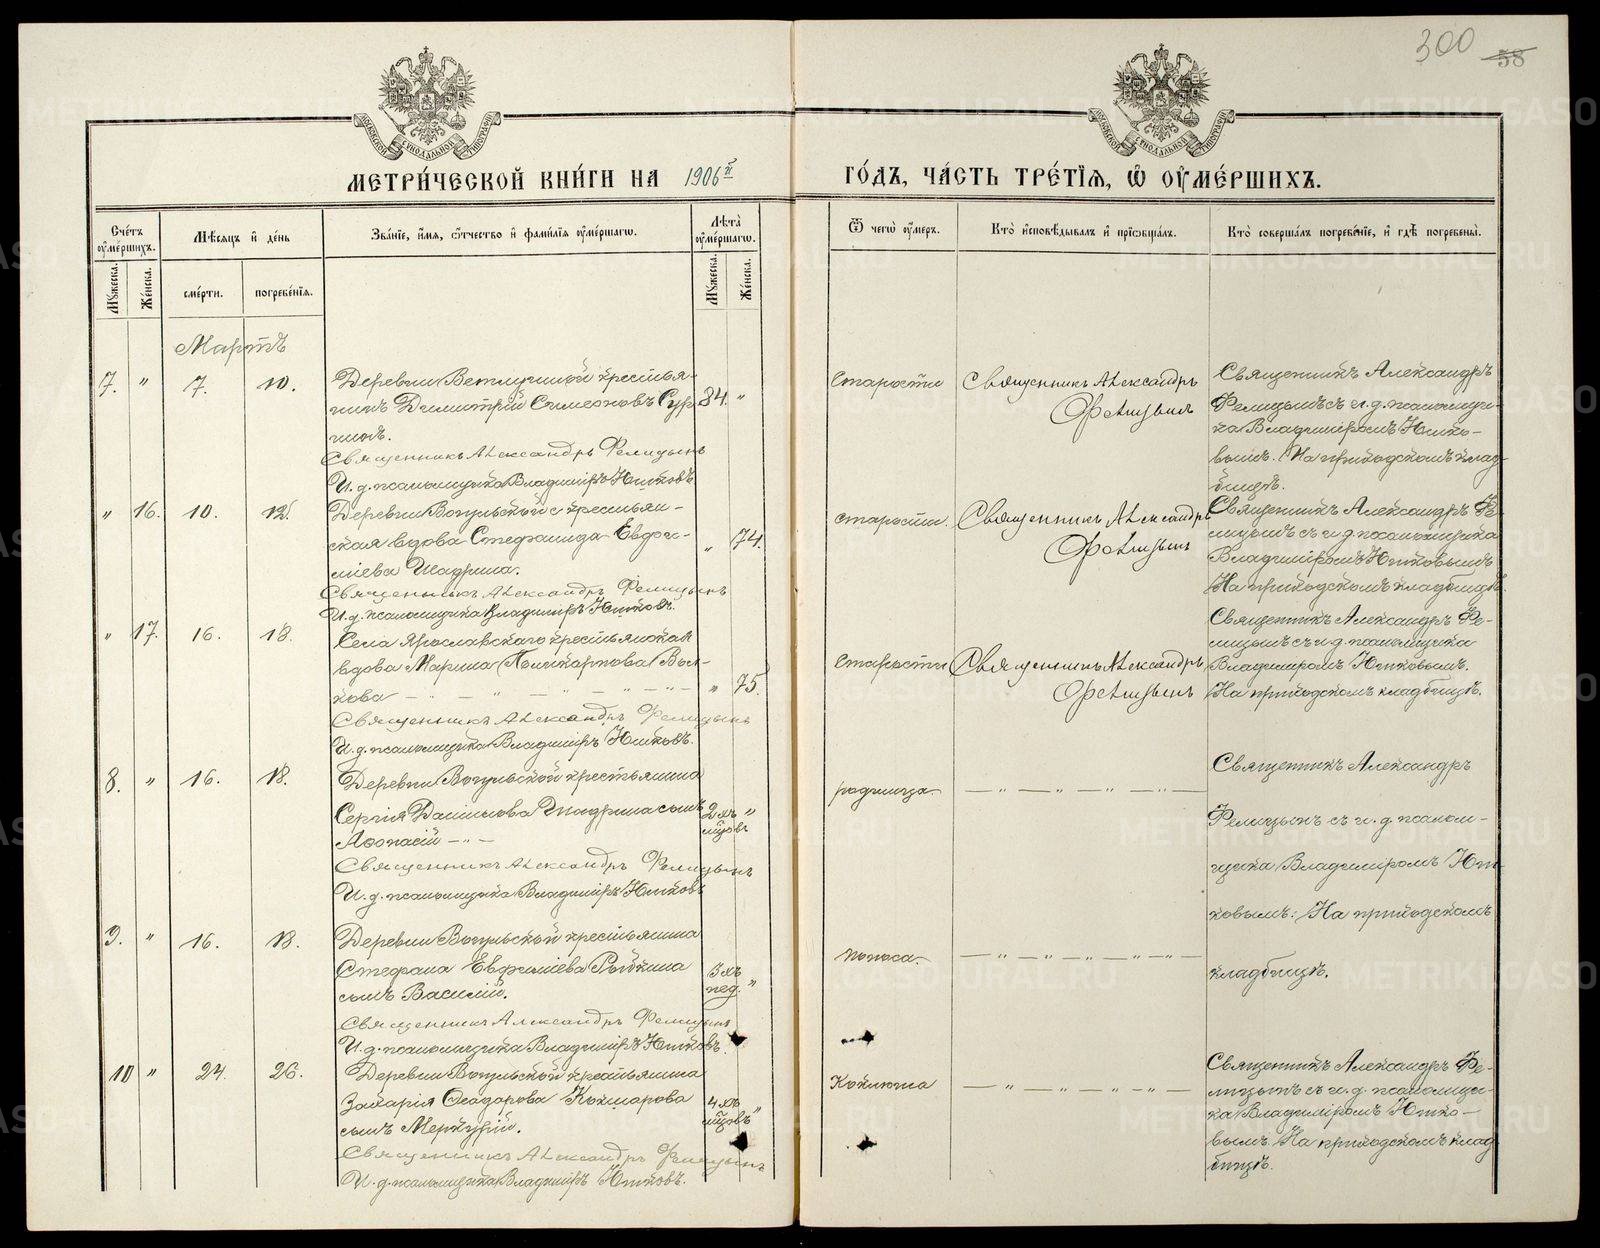 300 58
МЕТРИ́ЧЕСКОЙ КНИ́ГИ НА 1906й ГО́ДЪ, ЧА́СТЬ ТРЕ́ТІѦ, Ѿ ОУМЕ́РШИХЪ.
Сче́тъ оумéршихъ.
Мѣ́сѧцъ и де́нь
Зва́нїе, и́мѧ, о́тчество и фами́лїѧ оуме́ршагѡ.
Лѣ́та оуме́ршагѡ.
Ѿ чегѡ̀ оу́меръ.
Кто̀ и҆сповѣ́дывалъ и҆ прїѡбща́лъ.
Кто̀ соверша́лъ погребе́нїе, и҆ гдѣ̀ погребены̀.
Мꙋ́жеска. Же́нска.
сме́рти. погребе́нїѧ.
Мꙋ́жеска. Же́нска.
Мартъ
7. " 7. 10.
Деревни Ветлугиной крестья-
нинъ Димитрій Симеоновъ Сур-
нинъ.
84. "
Священникъ Александръ Фелицынъ
И. д. псаломщика Владиміръ Юшковъ
старости
Священникъ Александръ
Фелицынъ
Священникъ Александръ
Фелицынъ съ и. д. псаломщи-
ка Владиміромъ Юшко-
вымъ. На приходскомъ клад-
бищѣ.
" 16. 10. 12.
Деревни Вогульской крестьян-
ская вдова Стефанида Евдоки-
мова Шадрина.
" 74.
Священникъ Александръ Фелицынъ
И. д. псаломщика Владиміръ Юшковъ.
старости.
Священникъ Александръ
Фелицынъ
Священникъ Александръ Фе-
лицынъ съ и. д. псаломщика
Владиміромъ Юшковымъ
На приходскомъ кладбищѣ.
" 17. 16. 18.
Села Ярославскаго крестьянская
вдова Марина Поликарпова Вол-
кова
" 75.
Священникъ Александръ Фелицынъ
И. д. псаломщика Владиміръ Юшковъ.
старости
Священникъ Александръ
Фелицынъ
Священникъ Александръ Фе-
лицынъ съ и. д. псаломщика
Владиміромъ Юшковымъ.
На приходскомъ кладбищѣ.
8. " 16. 18.
Деревни Вогульской крестьянина
Сергія Данилова Шадрина сынъ
Аѳонасій
2 хъ мцовъ "
Священникъ Александръ Фелицынъ
И. д. псаломщика Владиміръ Юшковъ
родимца.
Священникъ Александръ
Фелицынъ съ и. д. псалом-
щика Владиміромъ Юш-
ковымъ. На приходскомъ
кладбищѣ.
9. " 16. 18.
Деревни Вогульской крестьянина
Стефана
сынъ Василій.
3 хъ нед. "
Священникъ Александръ Фелицынъ
И. д. псаломщика Владиміръ Юшковъ.
поноса.
10 " 24. 26.
Деревни Вогульской крестьянина
Захарія Ѳеодорова Кокшарова
сынъ Меркурій.
4 хъ мцовъ "
Священникъ Александръ Фелицынъ
И. д. псаломщика Владиміръ Юшковъ.
Коклюша
Священникъ Александръ Фе-
лицынъ съ и. д. псаломщи-
ка Владиміромъ Юшко-
вымъ. На приходскомъ клад-
бищѣ.